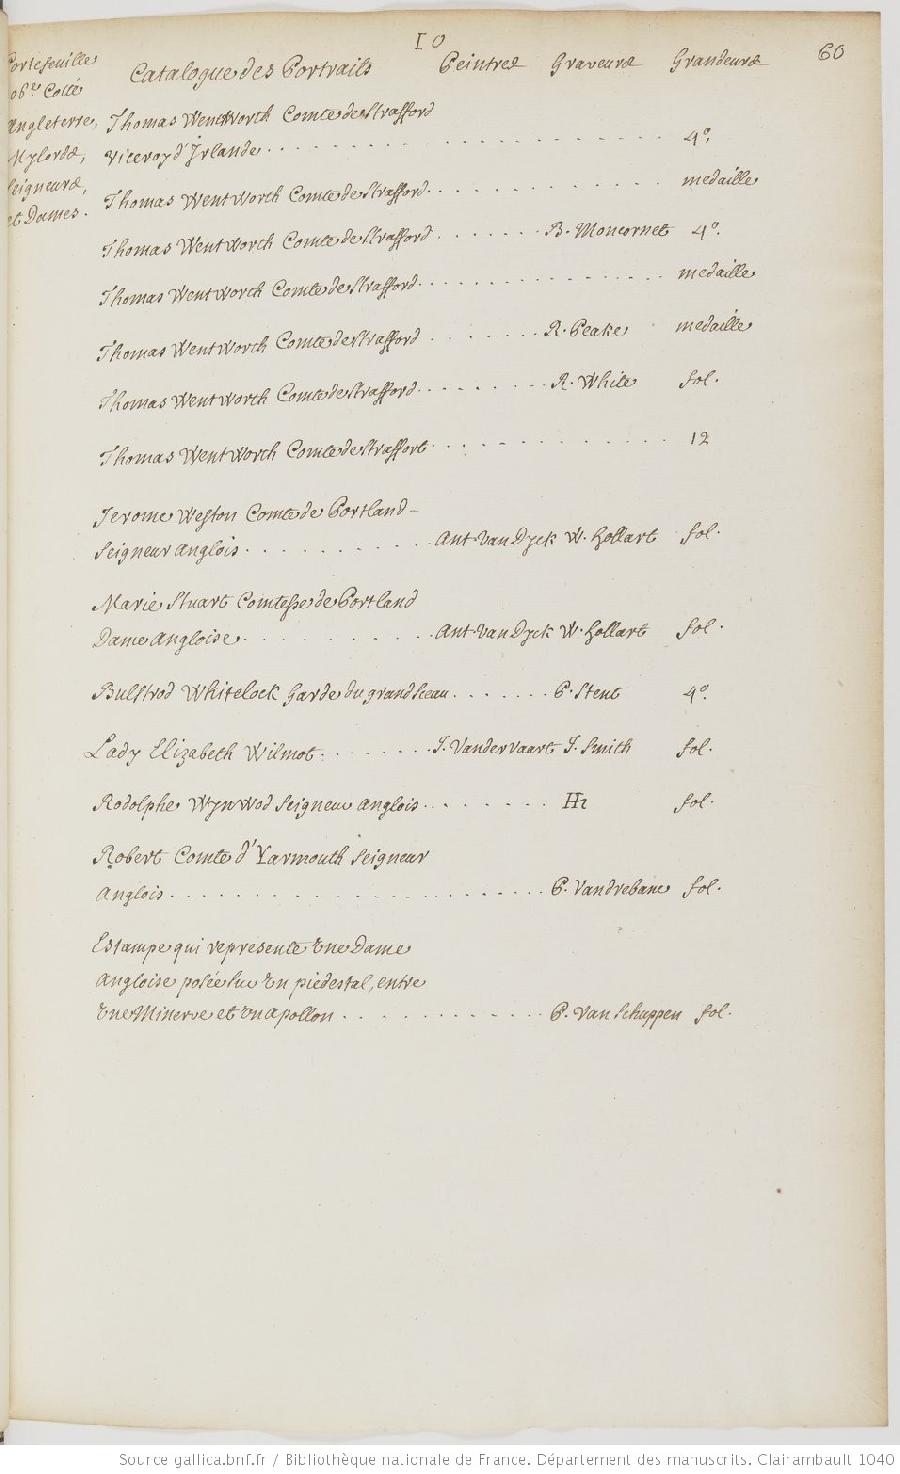 10
60
Catalogue des Portraits Peintres Graveurs Grandeurs
Portefeuilles
Angleterre,
Mylords,
Seigneurs,
et Dames.
Thomas Wentworth Comte de Strafford
Viceroy d'Irlande . . . 4º.
Thomas Wentworth Comte de Strafford . . . medaille
Thomas Wentworth Comte de Strafford . . . B. Moncornet 4º.
Thomas Wentworth Comte de Strafford . . . medaille
Thomas Wentworth Comte de Strafford . . . R. Peake medaille
Thomas Wentworth Comte de Strafford . . . R. White fol.
Thomas Wentworth Comte de Straffort . . . 12
Jerome Weston Comte de Portland -
Seigneur anglois . . . Ant. Van Dyck W. Hollart fol.
Marie Stuart Comtesse de Portland
Dame Angloise . . . Ant. Van Dyck W. Hollart fol.
Bulstrod Whitelock Garde du grand Sceau . . . P. Stent 4º.
Lady Elizabeth Wilmot . . . J. Vandervaart J. Smith fol.
Rodolphe Wynwod Seigneur anglois . . . fol.
Robert Comte d'Yarmouth Seigneur
Anglois . . . P. Vandrebanc fol.
Estampe qui represente une Dame
Angloise posée sur un piedestal, entre
une Minerve et un apollon . . . P. Van Schuppen fol.
Source gallica.bnf.fr / Bibliothèque nationale de France. Département des manuscrits. Clairambault 1040